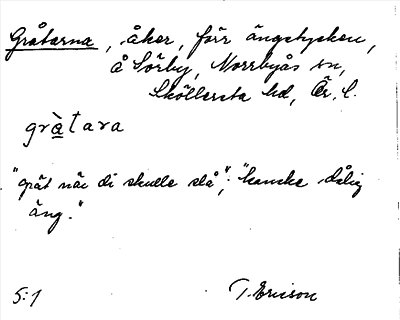 Gråtarna, åker, förr ängstycken,
å Sörby, Norrbyås sn,
Sköllersta hd, Ör. l.
gràtara
"grät när di skulle slå"; "kanske dålig
äng."
5:1 T. Ericson